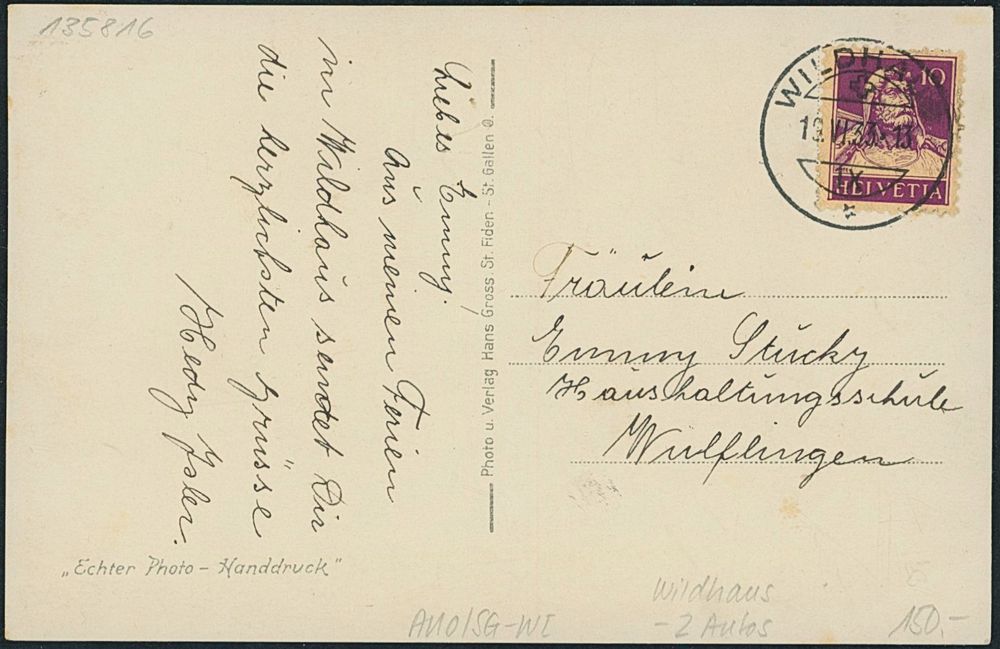 135816
Liebes Emmy.
Aus meinen Ferien
in Wildhaus sendet Dir
die herzlichsten Grüsse
Hedy Isler.
„Echter Photo – Handdruck"
Photo u. Verlag Hans Gross, St. Fiden – St. Gallen O.
WILDHA
19.VI.33.-13
IX
10
HELVETIA
Fräulein
Emmy Stucky
Haushaltungsschule
Wülflingen
Wildhaus
- 2 Autos
150.-